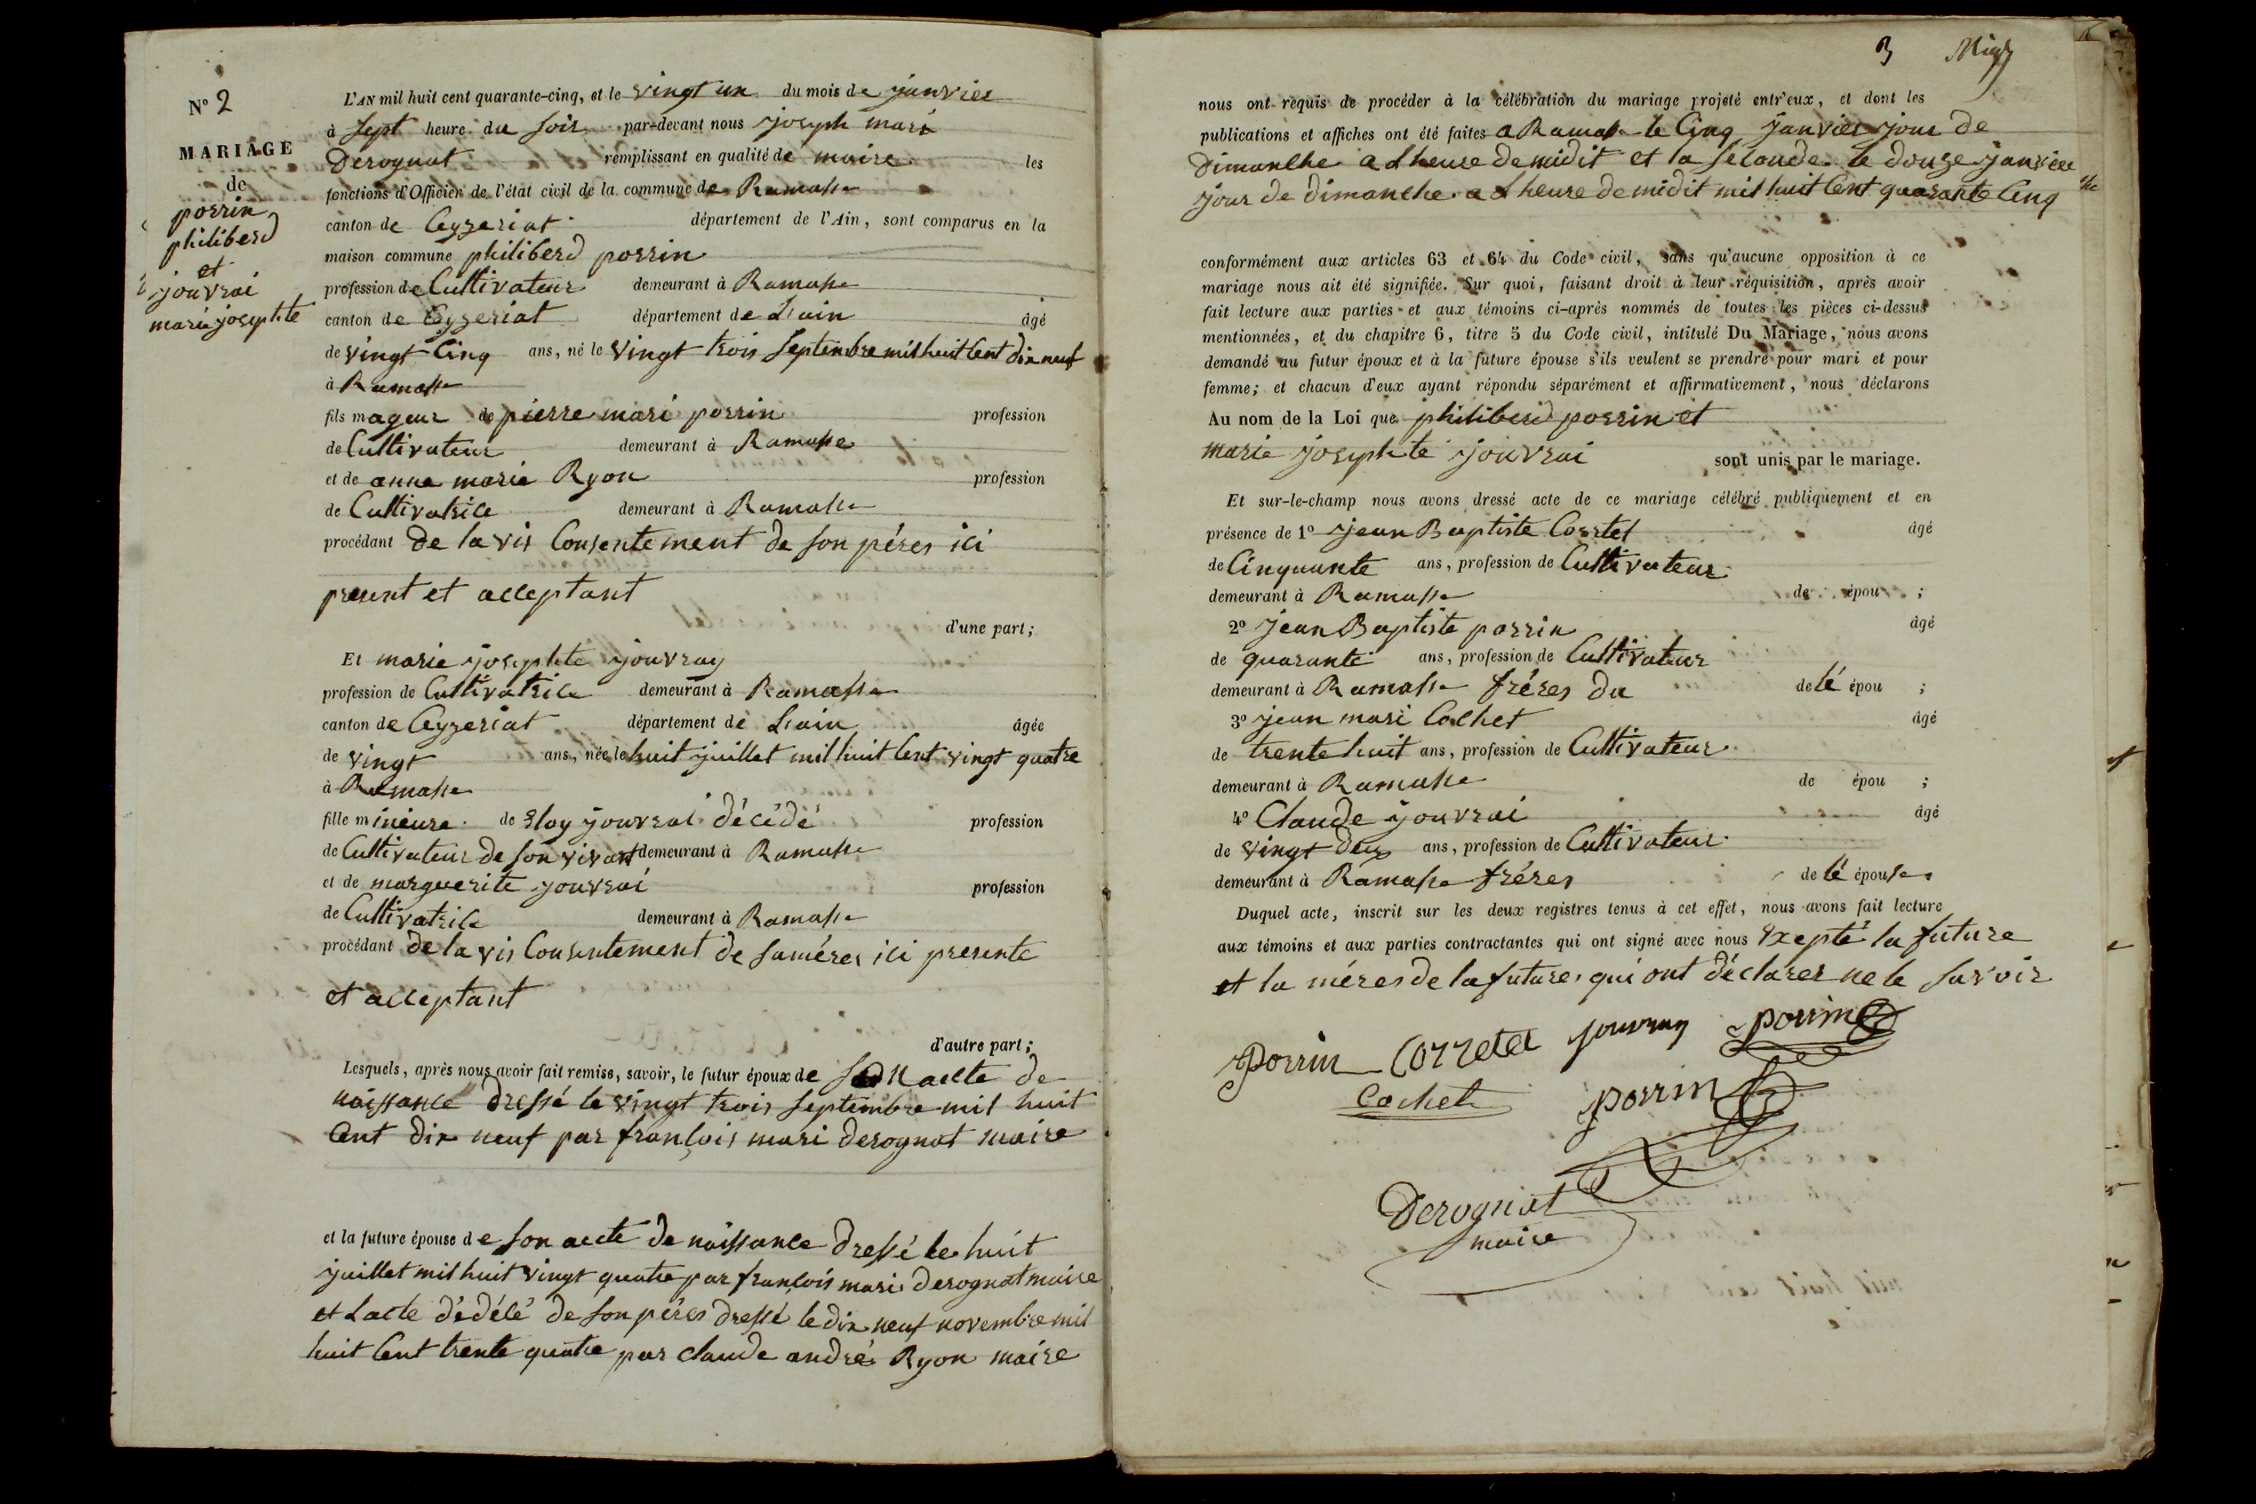 N° 2
MARIAGE
de
porrin
philiberd
et
jouvrai
marie josephte
L'AN mil huit cent quarante-cinq, et le vingt un du mois de janvier
à sept heure du soir par-devant nous joseph mari
Derognat remplissant en qualité de maire les
fonctions d'Officier de l'état civil de la commune de Ramasse
canton de Ceyzeriat département de l'Ain, sont comparus en la
maison commune philiberd porrin
profession de Cultivateur demeurant à Ramasse
canton de Cyzeriat département de Lain âgé
de vingt Cinq ans, né le vingt trois septembre mil huit Cent dix neuf
à Ramasse
fils mageur de pierre mari porrin profession
de Cultivateur demeurant à Ramasse
et de anne marie Ryon profession
de Cultivatrice demeurant à Ramasse
procédant de la vis Consentement de son péres ici
present et acceptant
d'une part;
Et marie josephte jouvray
profession de Cultivatrice demeurant à Ramasse
canton de Ceyzeriat département de Lain âgée
de vingt ans, née le huit juillet mil huit Cent vingt quatre
à Ramasse
fille mineure de Eloy jouvrai décédé profession
de Cultivateur de son vivant demeurant à Ramasse
et de marguerite jouvrai profession
de Cultivatrice demeurant à Ramasse
procédant de la vis Consentement de saméres ici presente
et acceptant
d'autre part;
Lesquels, après nous avoir fait remise, savoir, le futur époux de son acte de
naissance dressé le vingt trois septembre mil huit
Cent dix neuf par françois mari derognat maire
et la future épouse de son acte de naissance dressé le huit
juillet mil huit vingt quatre par françois mari derognat maire
et Lacte dédécé de son péres dressé le dix neuf novembre mil
huit Cent trente quatre par claude andré Ryon maire
3
nous ont requis de procéder à la célébration du mariage projeté entr'eux, et dont les
publications et affiches ont été faites a Ramasse le Cinq janvier jour de
dimanche a Lheure de midit et la seconde le douze janvier
jour de dimanche a Lheure de midit mil huit Cent quarante Cinq
conformément aux articles 63 et 64 du Code civil, sans qu'aucune opposition à ce
mariage nous ait été signifiée. Sur quoi, faisant droit à leur réquisition, après avoir
fait lecture aux parties et aux témoins ci-après nommés de toutes les pièces ci-dessus
mentionnées, et du chapitre 6, titre 5 du Code civil, intitulé Du Mariage, nous avons
demandé au futur époux et à la future épouse s'ils veulent se prendre pour mari et pour
femme; et chacun d'eux ayant répondu séparément et affirmativement, nous déclarons
Au nom de la Loi que philiberd porrin et
marie josephte jouvrai sont unis par le mariage.
Et sur-le-champ nous avons dressé acte de ce mariage célébré publiquement et en
présence de 1° jean Baptiste Corretel âgé
de Cinquante ans, profession de Cultivateur
demeurant à Ramasse de épou ;
2° jean Baptiste porrin âgé
de quarante ans, profession de Cultivateur
demeurant à Ramasse fréres du de lé épou ;
3° jean mari Cochet âgé
de trente huit ans, profession de Cultivateur
demeurant à Ramasse de épou ;
4° Claude jouvrai âgé
de vingt deux ans, profession de Cultivateur
demeurant à Ramasse fréres de lé épouse
Duquel acte, inscrit sur les deux registres tenus à cet effet, nous avons fait lecture
aux témoins et aux parties contractantes qui ont signé avec nous Exepté la future
et la méres de la future qui ont déclarer ne le savoir
Porrin Corretel jouvray porrin
Cochet porrin
Derognat
maire